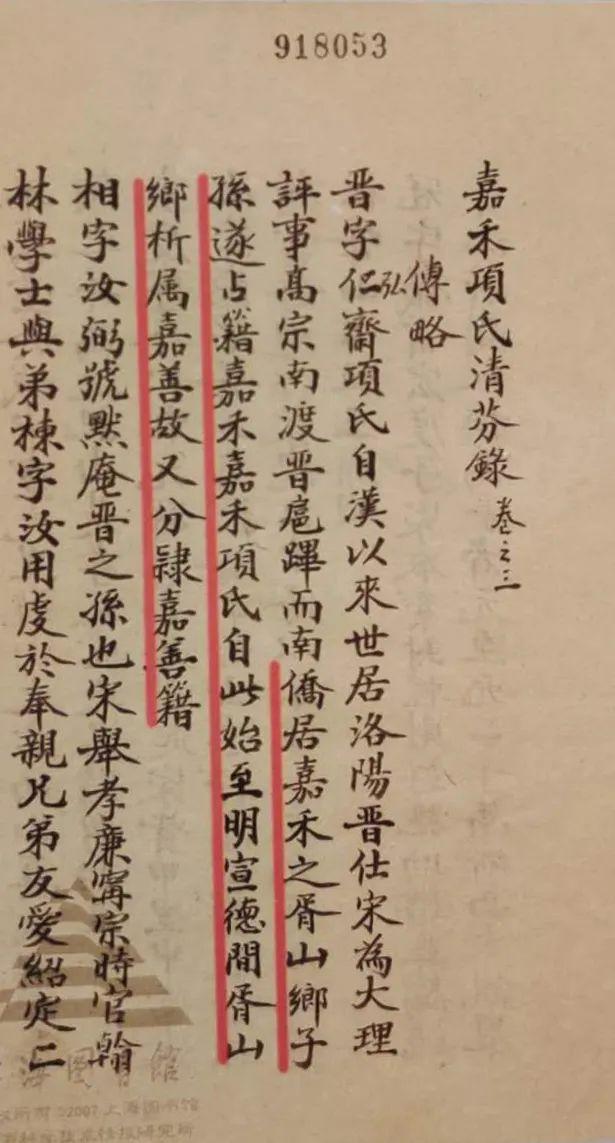 918053
嘉禾項氏清芬錄 卷之三
傳略
晋字仁齋項氏自漢以來世居洛陽晋仕宋為大理
弘
評事高宗南渡晋扈蹕而南僑居嘉禾之胥山鄉子
孫遂占籍嘉禾嘉禾項氏自此始至明宣德間胥山
鄉析属嘉善故又分隸嘉善籍
相字汝弼號默庵晋之孫也宋舉孝廉寧宗時官翰
林學士與弟棟字汝用虔於奉親兄弟友愛紹定二
海圖書館
©2007 上海图书馆